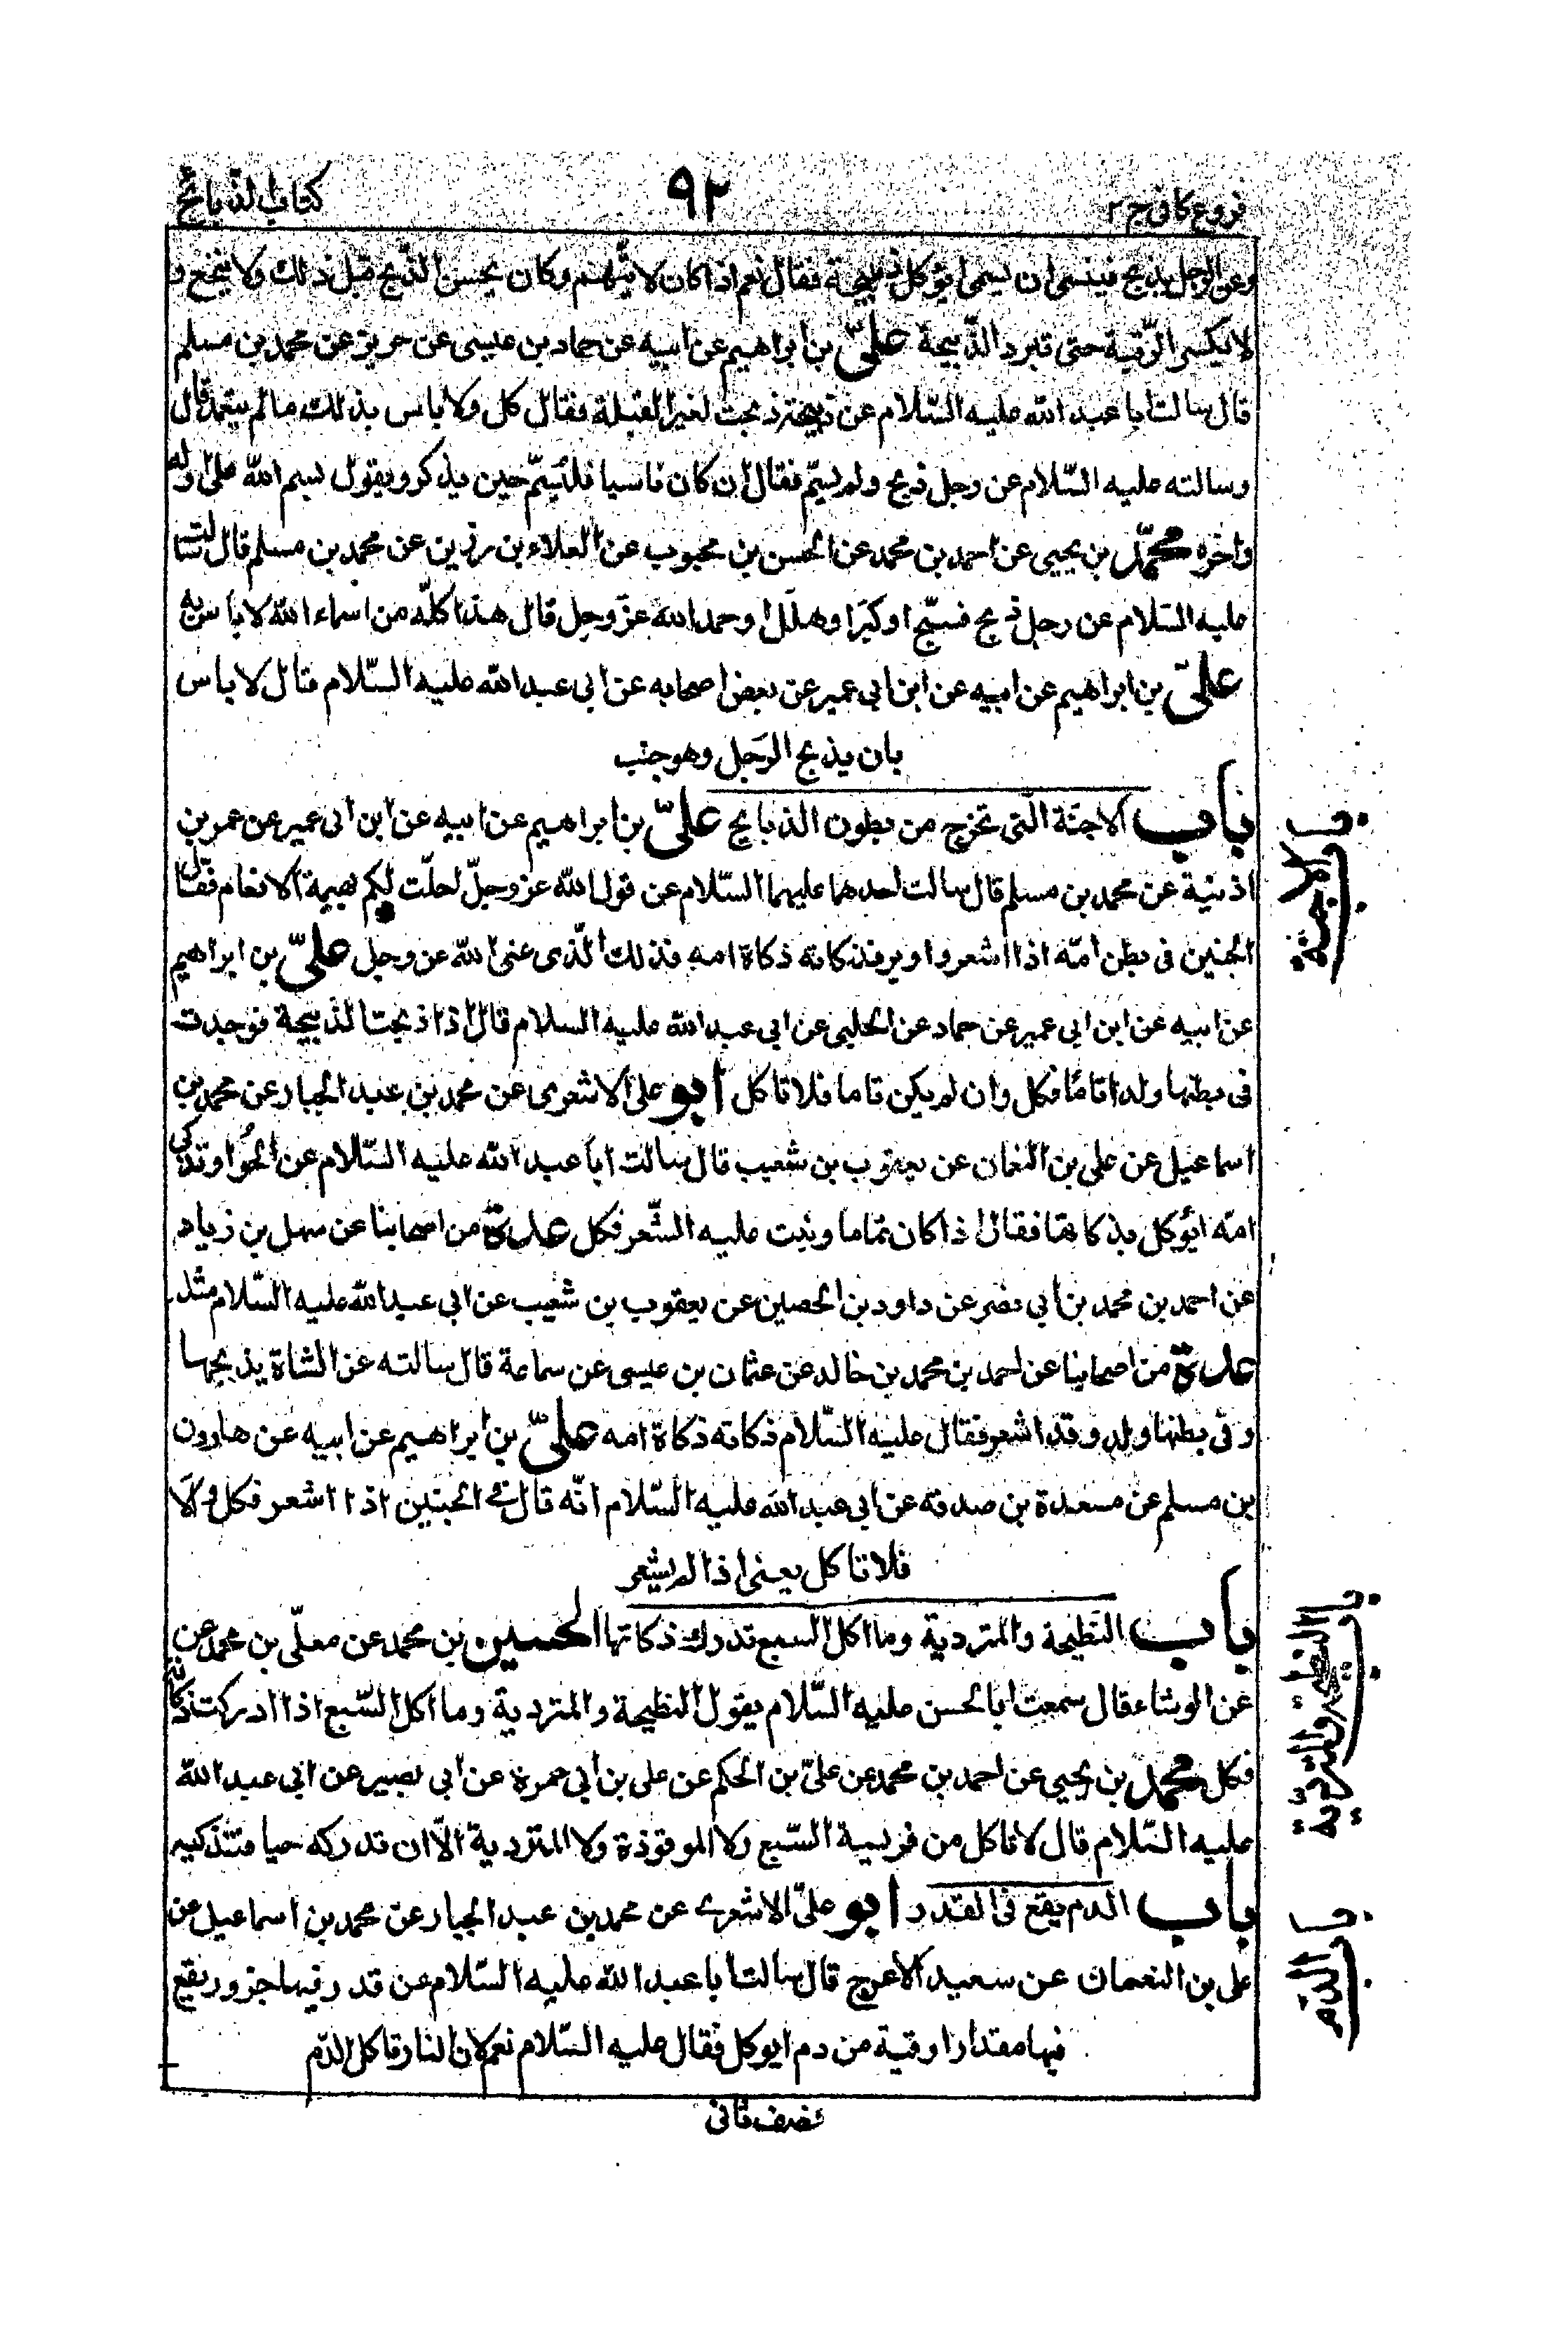 فروع كافى ج ٢
٩٢
كتاب الذبائح
وعن الرجل يذبح فينسى ان يسمى ايؤكل ذبيحة فقال نعم اذا كان لا يتهم وكان يحسن الذبح قبل ذلك ولا ينخع و
لا يكسر الرقبة حتى تبرد الذبيحة علىّ بن ابراهيم عن ابيه عن حماد بن عيسى عن حريز عن محمد بن مسلم
قال سالت ابا عبد الله عليه السّلام عن ذبيحة ذبحت لغير القبلة فقال كل ولا باس بذلك مالم يتعمد قال
وسالته عليه السّلام عن رجل ذبح ولم يسمّ فقال ان كان ناسيا فليسمّ حين يذكر ويقول بسم الله على اوله
واخره محمّد بن يحيى عن احمد بن محمد عن الحسن بن محبوب عن العلاء بن رزين عن محمد بن مسلم قال سالته
عليه السّلام عن رجل ذبح فسبّح او كبّر او هلّل او حمد الله عزّ وجل قال هذا كلّه من اسماء الله لا باس به
علىّ بن ابراهيم عن ابيه عن ابن ابى عمير عن بعض اصحابه عن ابى عبد الله عليه السّلام قال لا باس
بان يذبح الرّجل وهو جنب
باب الاجنّة الّتى تخرج من بطون الذبايح علىّ بن ابراهيم عن ابيه عن ابن ابى عمير عن عمر بن
اذينية عن محمد بن مسلم قال سالت احدهما عليهما السّلام عن قول الله عز وجلّ احلّت لكم بهيمة الانعام فقال
الجنين فى بطن امّه اذا اشعر واوبر فذكاته ذكاة امه فذلك الّذى عنى الله عز وجل علىّ بن ابراهيم
عن ابيه عن ابن ابى عمير عن حماد عن الحلبى عن ابى عبد الله عليه السلام قال اذا ذبحت الذبيحة فوجدت
فى بطنها ولدا تامّا فكل وان لم يكن تاما فلا تاكل ابو على الاشعرى عن محمد بن عبد الجبار عن محمد بن
اسماعيل عن على بن النعمان عن يعقوب بن شعيب قال سالت ابا عبد الله عليه السّلام عن الحُوار تذكى
امّه ايؤكل بذكاتها فقال اذا كان تماما ونبت عليه الشّعر فكل عدة من اصحابنا عن سهل بن زياد
عن احمد بن محمد بن ابى نصر عن داود بن الحصين عن يعقوب بن شعيب عن ابى عبد الله عليه السّلام مثله
عدة من اصحابنا عن احمد بن محمد بن خالد عن عثمان بن عيسى عن سماعة قال سالته عن الشاة يذبحها
وفى بطنها ولد وقد اشعر فقال عليه السّلام ذكاته ذكاة امه علىّ بن ابراهيم عن ابيه عن هارون
بن مسلم عن مسعدة بن صدقه عن ابى عبد الله عليه السّلام انّه قال فى الجنين اذا اشعر فكل والا
فلا تاكل يعنى اذا لم يشعر
باب النّطيحة والمتردية وما اكل السبع تدرك ذكاتها الحسين بن محمد عن معلّى بن محمد عن
عن الوشاء قال سمعت ابا الحسن عليه السّلام يقول النطيحة والمتردية وما اكل السّبع اذا ادركت ذكاته
فكل محمد بن يحيى عن احمد بن محمد عن علىّ بن الحكم عن على بن ابى حمزة عن ابى بصير عن ابى عبد الله
عليه السّلام قال لا تاكل من فريسة السّبع ولا الموقوذة ولا المتردية الّا ان تدركه حيا فتذكيه
باب الدم يقع فى القدر ابو علىّ الاشعرى عن محمد بن عبد الجبار عن محمد بن اسماعيل عن
على بن النعمان عن سعيد الاعرج قال سالت ابا عبد الله عليه السّلام عن قدر فيها جزور يقع
فيها مقدار اوقية من دم ايوكل فقال عليه السّلام نعم لان النار تاكل الدّم
نصف ثانى
باب الاجنة
باب النطيحة والمتردية
باب الدم